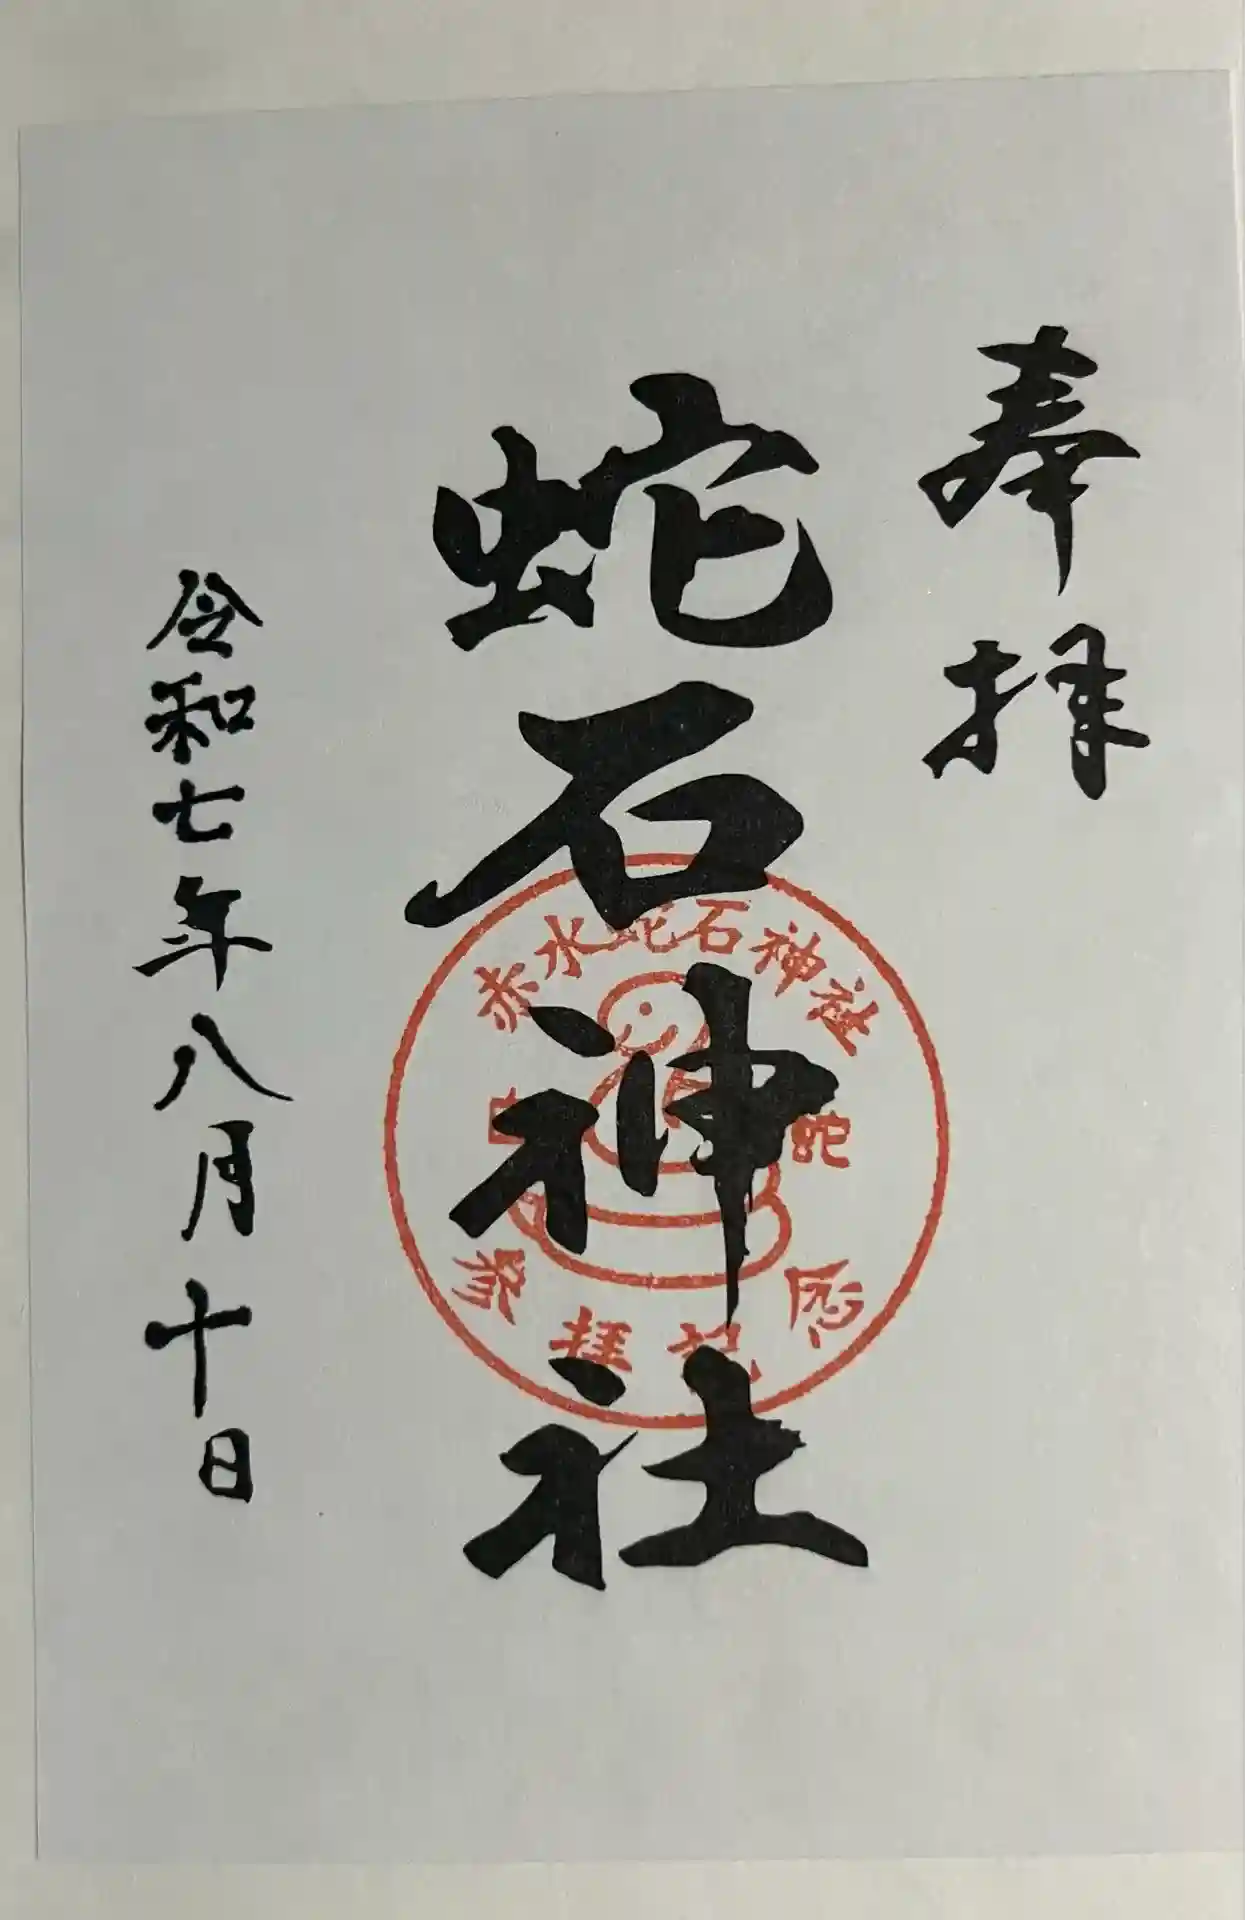 奉拝
蛇石神社
赤水蛇石神社
白蛇
参拝記念
令和七年八月十日